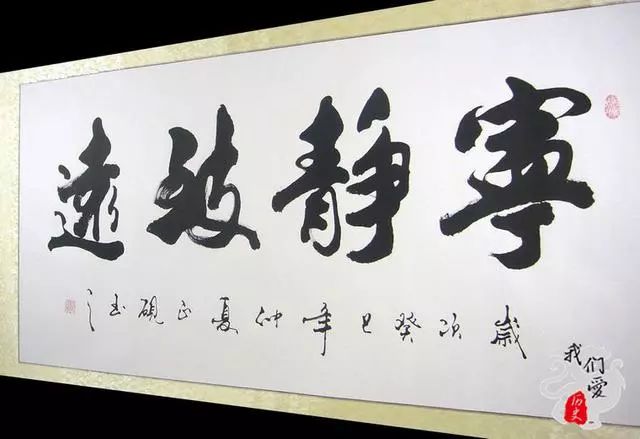 寧靜致遠
歲次癸巳年仲夏正硯书之
我们愛
历史